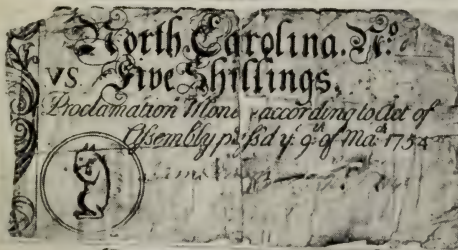 North Carolina. No.
VS. Five Shillings.
Proclamation Mone according to Act of
Assembly pass'd ye. 9th. of Mach. 1754